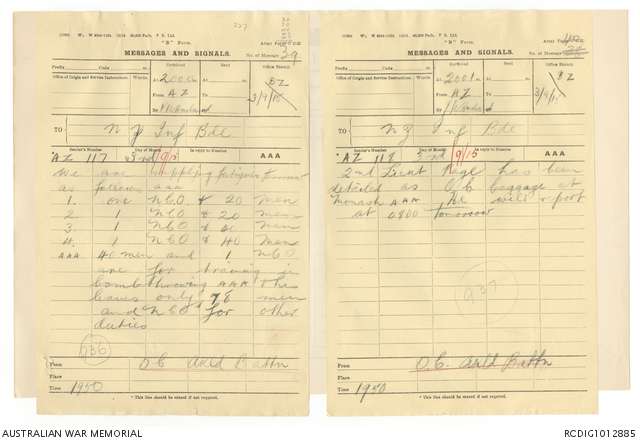 227
"B" Form.
Army Form C
MESSAGES AND SIGNALS.
No. of Message 39
Prefix Code m.
Office of Origin and Service Instructions.
Words.
Received
At 2000
From AZ
By
Sent
At m.
To
By
Office Stamp.
BZ
3/9/15
TO
NZ Inf Bde
Sender's Number
Day of Month
In reply to Number
AZ 117 3rd 9/15
AAA
We are supplying fatigues
as follows aaa
1. one NCO & 20 men
2. 1 NCO & 20 men
3. 1 NCO & men
4. 1 NCO & 40 men
AAA 40 men and 1 NCO
are for training in
bomb throwing AAA This
leaves only 78 men
and NCO for other
duties
936
From
Place
Time 1950
* This line should be erased if not required.
"B" Form.
Army Form C
MESSAGES AND SIGNALS.
No. of Message
Prefix Code m.
Office of Origin and Service Instructions.
Words.
Received
At 2001
From AZ
By
Sent
At m.
To
By
Office Stamp.
BZ
3/9/15
TO
NZ Inf Bde
Sender's Number
Day of Month
In reply to Number
AZ 118 3rd 9/15
AAA
2nd Lieut Page has been
detailed as O.C. baggage at
Monash AAA He will report
at 0800 tomorrow
937
From
Place
Time 1950
* This line should be erased if not required.
AUSTRALIAN WAR MEMORIAL
RCDIG1012885